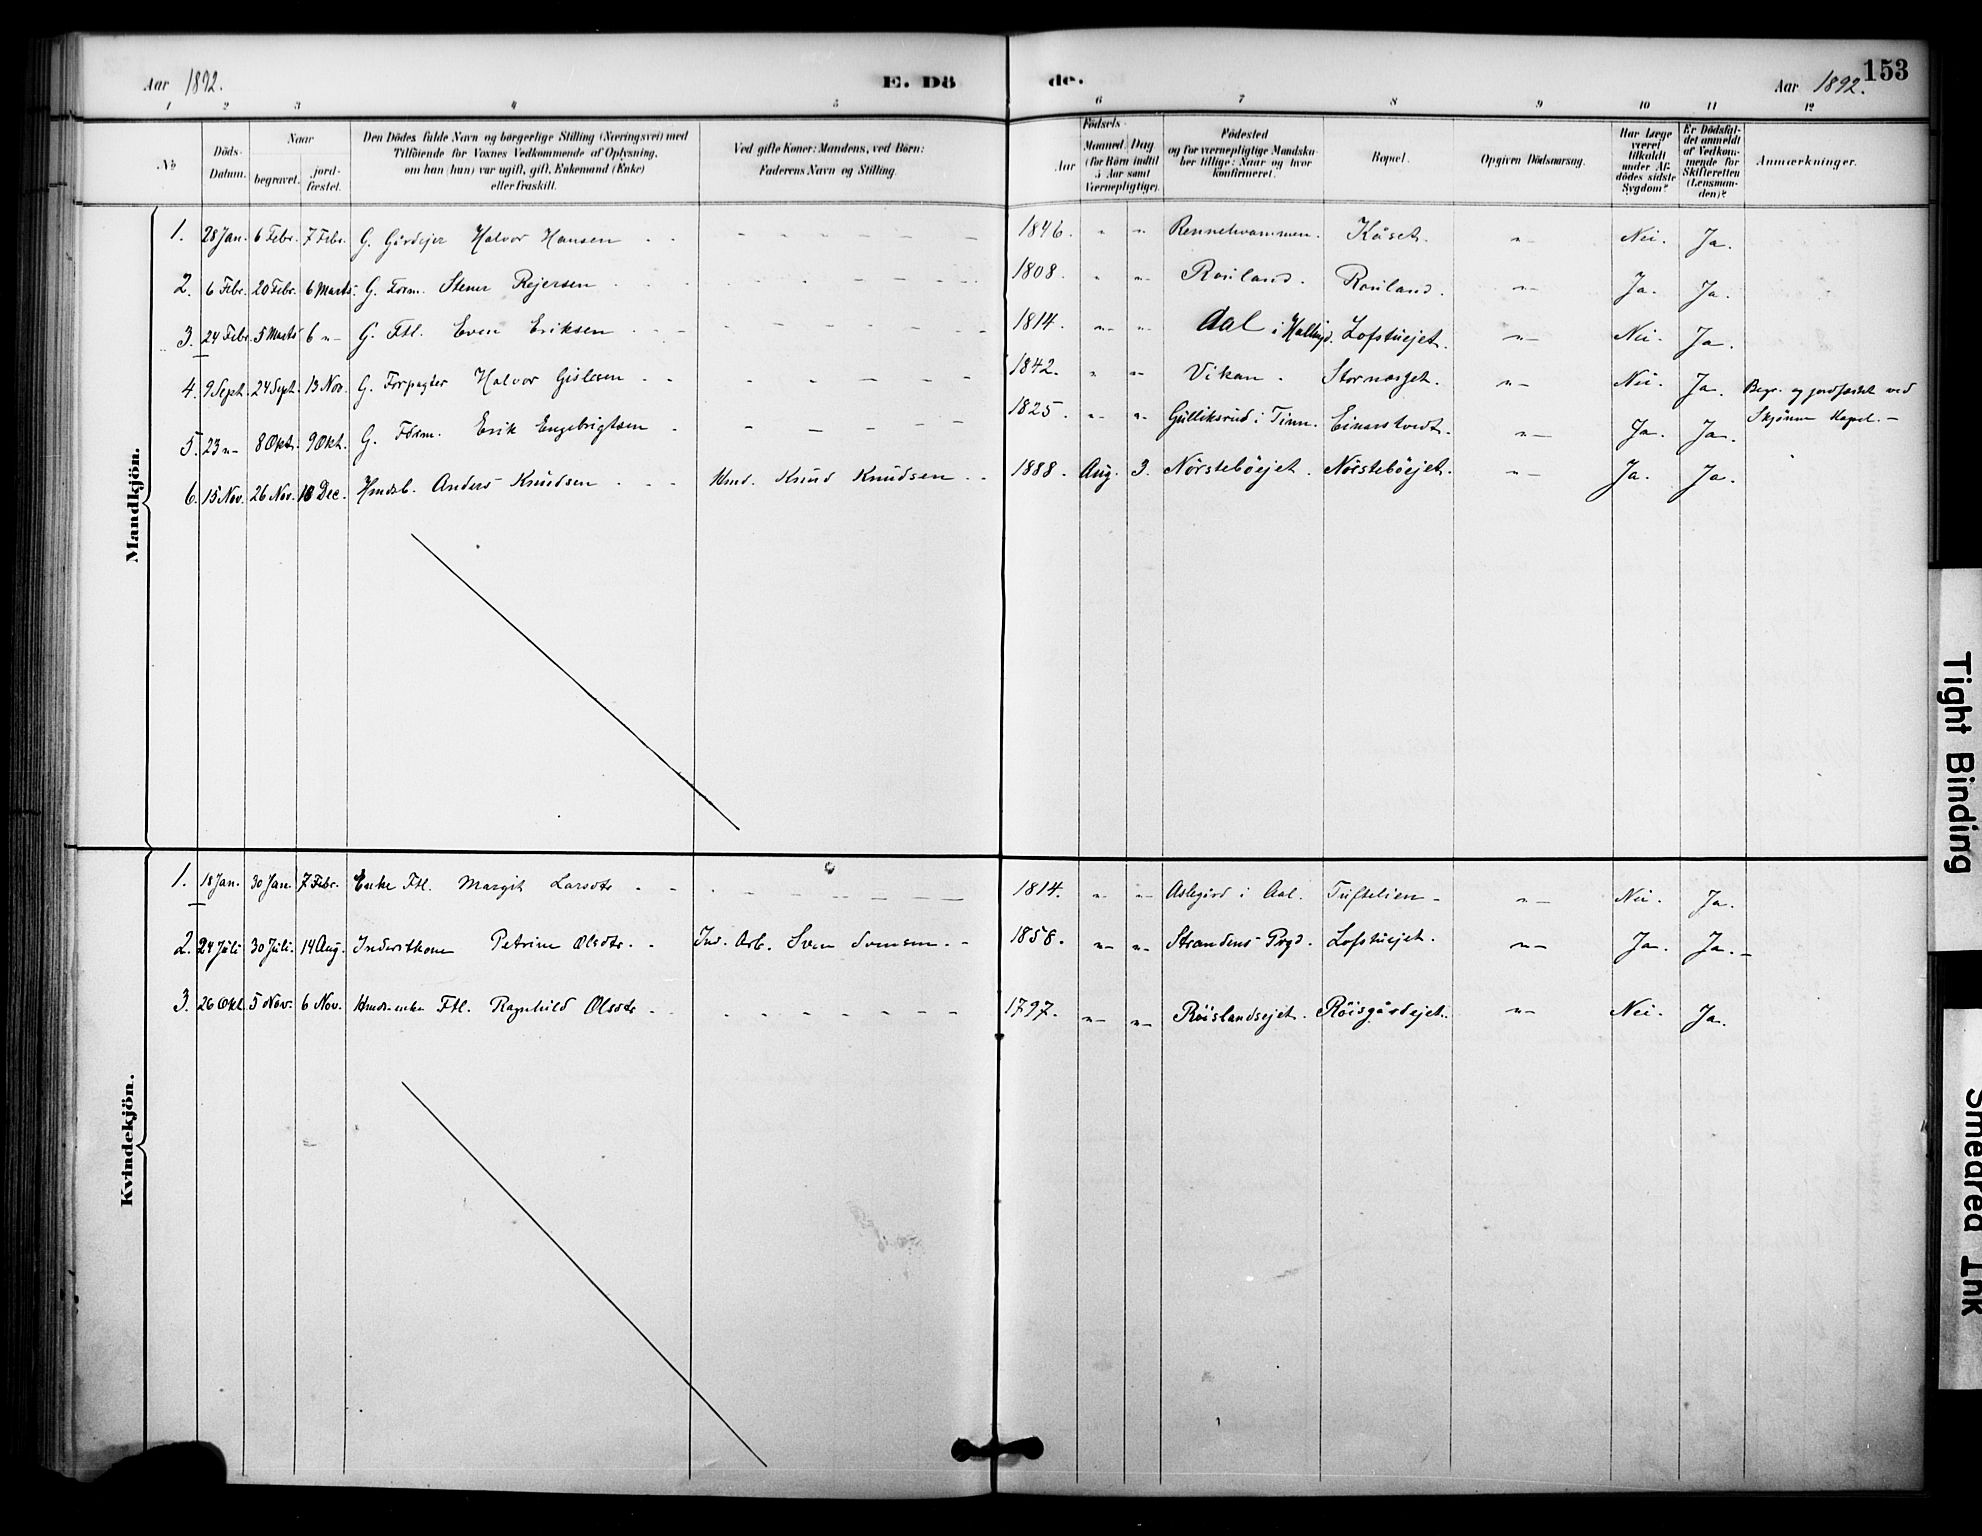 Aar 1892.
E. Dö de.
Aar 1892.
153
1 2 3 4 5 6 7 8 9 10 11 12
No
Döds-Datum.
Naar
begravet.
jord-fæstet.
Den Dödes fulde Navn og borgerlige Stilling (Næringsvei) med
Tilföiende for Voxnes Vedkommende af Oplysning,
om han (hun) var ugift, gift, Enkemand (Enke)
eller fraskilt.
Ved gifte Koner: Mandens, ved Börn:
Faderens Navn og Stilling.
Födsels-
Aar
Maaned. Dag
(for Börn indtil
5 Aar samt
Værnepligtige).
Födested
og for værnepligtige Mandska-
ber tillige: Naar og hvor
konfirmeret.
Bopæl.
Opgiven Dödsaarsag.
Har Læge
været
tilkaldt
under Af-
dödes sidste
Sygdom?
Er Dödsfal-
det anmeldt
af Vedkom-
mende for
Skifteretten
(Lensman-
den)?
Anmærkninger.
Mandkjön.
1. 28 Jan. 6 Febr. 7 Febr. G. Gårdejer Halvor Hansen 1846. " "- Rennehvammen. Kåset. "- Nei. Ja.
2. 6 Febr. 20 Febr. 6 Marts. G. Form. Stener Rejersen 1808. " "- Rauland. Rauland. "- Ja. Ja.
3. 24 Febr. 5 Marts 6 "- G. Ftl. Even Eriksen 1814. "- "- Aal i Hallingd. Lofstuejet. "- Nei. Ja.
4. 9 Sept. 24 Sept. 13 Nov. G. Forpagter Halvor Gislesen 1842. " "- Vikan. Stornæsjet. "- Nei. Ja. Begr. og jordfæstet ved
Skjönne Kapel. -
5. 23 "- 8 Okt. 9 Okt. G. Form. Erik Engebrigtsen 1825. "- "- Gulliksrud i Tinn. Einarstvedt. "- Ja. Ja.
6. 15 Nov. 26 Nov. 18 Dec. Hmdsb. Anders Knudsen Hmd. Knud Knudsen 1888. Aug. 3. Nørstebøejet. Nørstebøejet. "- Ja. Ja.
Kvindekjön.
1. 18 Jan. 30 Jan. 7 Febr. Enke Ftl. Margit Larsdtr 1814. "- "- Aslegård i Aal. Tuftelien - "- Nei. Ja.
2. 24 Juli 30 Juli. 14 Aug. Inderstkone Petrine Olsdtr. Ind. Arb. Sven Svensen. 1858. "- "- Strandens Prgd. Lofstuejet. "- Ja. Ja. -
3. 26 Okt. 5 Nov. 6 Nov. Hmdsenke Ftl. Ragnhild Olsdtr 1797. "- "- Röislandsejet. Röisgårdejet. "- Nei. Ja.
Tight Binding
Smeared Ink